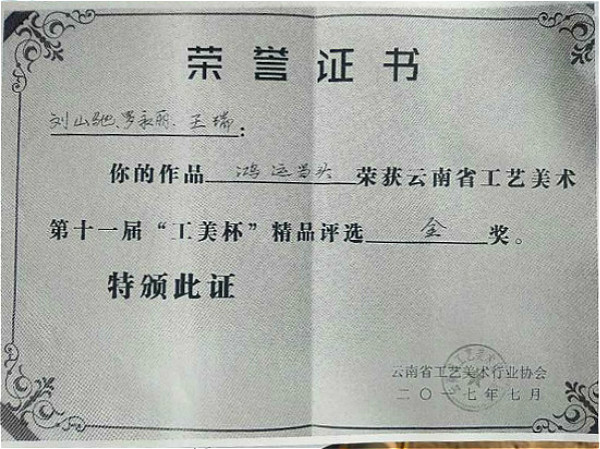 荣誉证书
刘山驰、罗永丽、王瑞：
你的作品 鸿运当头 荣获云南省工艺美术
第十一届“工美杯”精品评选 金 奖。
特颁此证
云南省工艺美术行业协会
二〇一七年七月